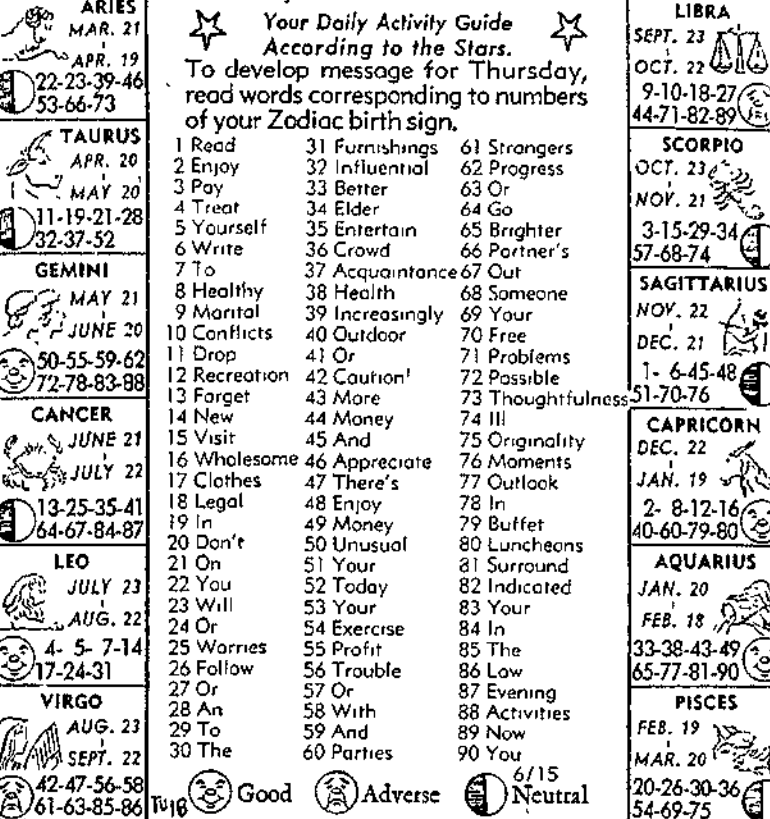 ARIES
MAR. 21
APR. 19
22-23-39-46
53-66-73
TAURUS
APR. 20
MAY 20
11-19-21-28
32-37-52
GEMINI
MAY 21
JUNE 20
50-55-59-62
72-78-83-88
CANCER
JUNE 21
JULY 22
13-25-35-41
64-67-84-87
LEO
JULY 23
AUG. 22
4- 5- 7-14
17-24-31
VIRGO
AUG. 23
SEPT. 22
42-47-56-58
61-63-85-86
Your Daily Activity Guide
According to the Stars.
To develop message for Thursday,
read words corresponding to numbers
of your Zodiac birth sign.
1 Read
2 Enjoy
3 Pay
4 Treat
5 Yourself
6 Write
7 To
8 Healthy
9 Marital
10 Conflicts
11 Drop
12 Recreation
13 Forget
14 New
15 Visit
16 Wholesome
17 Clothes
18 Legal
19 In
20 Don't
21 On
22 You
23 Will
24 Or
25 Worries
26 Follow
27 Or
28 An
29 To
30 The
31 Furnishings
32 Influential
33 Better
34 Elder
35 Entertain
36 Crowd
37 Acquaintance
38 Health
39 Increasingly
40 Outdoor
41 Or
42 Caution!
43 More
44 Money
45 And
46 Appreciate
47 There's
48 Enjoy
49 Money
50 Unusual
51 Your
52 Today
53 Your
54 Exercise
55 Profit
56 Trouble
57 Or
58 With
59 And
60 Parties
61 Strangers
62 Progress
63 Or
64 Go
65 Brighter
66 Partner's
67 Out
68 Someone
69 Your
70 Free
71 Problems
72 Possible
73 Thoughtfulness
74 Ill
75 Originality
76 Moments
77 Outlook
78 In
79 Buffet
80 Luncheons
81 Surround
82 Indicated
83 Your
84 In
85 The
86 Law
87 Evening
88 Activities
89 Now
90 You
6/15
Good Adverse Neutral
LIBRA
SEPT. 23
OCT. 22
9-10-18-27
44-71-82-89
SCORPIO
OCT. 23
NOV. 21
3-15-29-34
57-68-74
SAGITTARIUS
NOV. 22
DEC. 21
1- 6-45-48
51-70-76
CAPRICORN
DEC. 22
JAN. 19
2- 8-12-16
40-60-79-80
AQUARIUS
JAN. 20
FEB. 18
33-38-43-49
65-77-81-90
PISCES
FEB. 19
MAR. 20
20-26-30-36
54-69-75